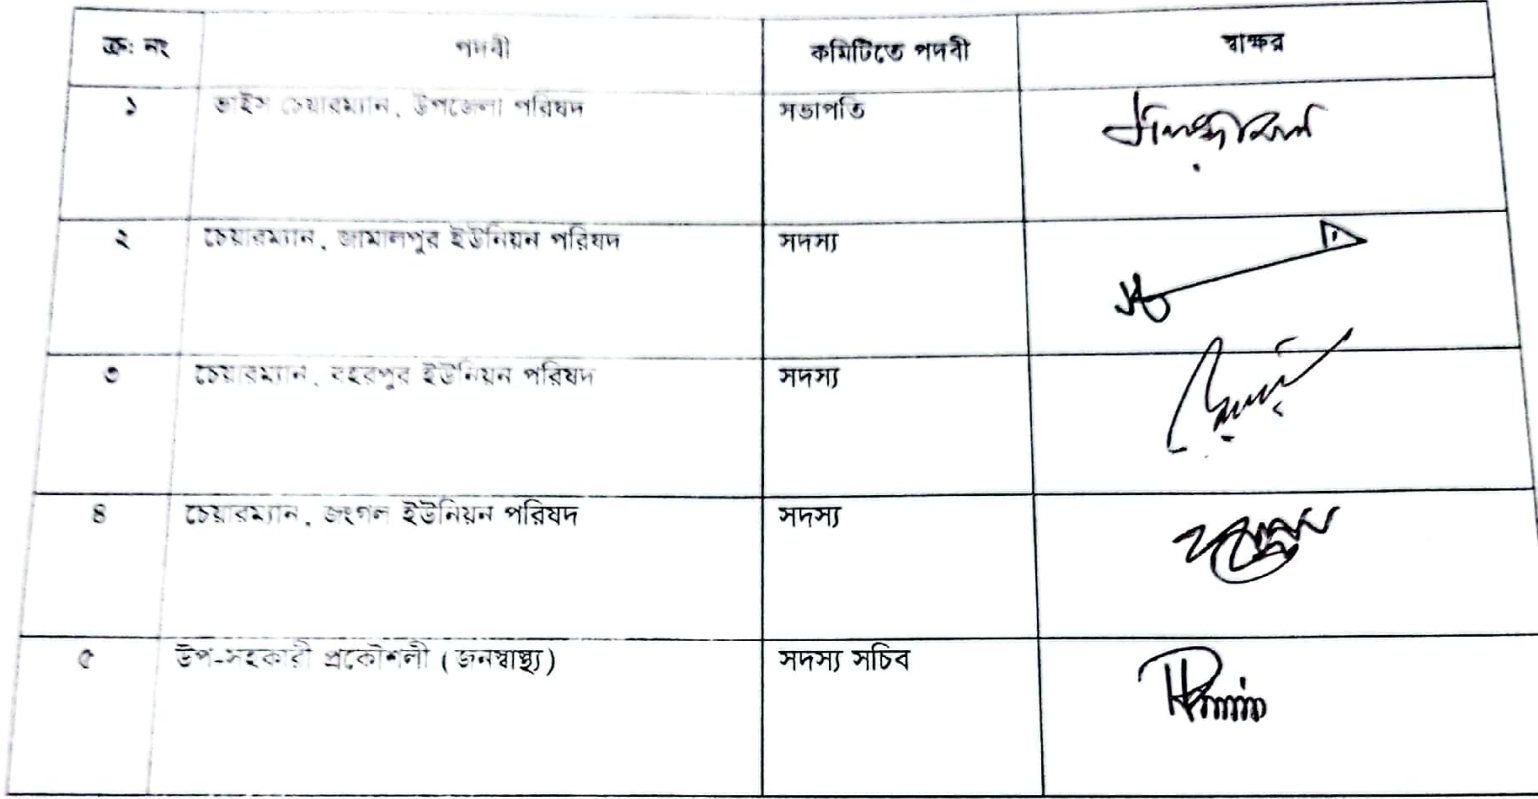 ক্র: নং পদবী কমিটিতে পদবী স্বাক্ষর
১ ভাইস চেয়ারম্যান, উপজেলা পরিষদ সভাপতি
২ চেয়ারম্যান, জামালপুর ইউনিয়ন পরিষদ সদস্য
৩ চেয়ারম্যান, বহরপুর ইউনিয়ন পরিষদ সদস্য
৪ চেয়ারম্যান, জংগল ইউনিয়ন পরিষদ সদস্য
৫ উপ-সহকারী প্রকৌশলী (জনস্বাস্থ্য) সদস্য সচিব